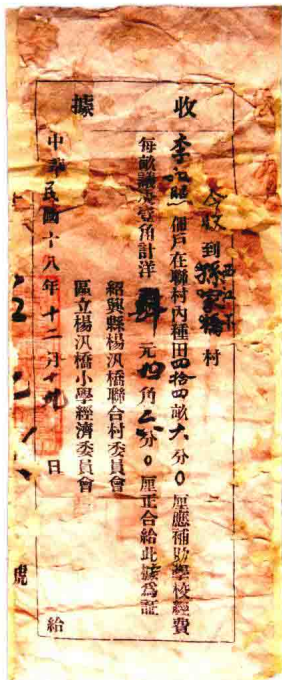 收據
今收到孫家橋村
李 佃戶在聯村內種田四拾四畝六分0厘應補助學校經費
每畝議決壹角計洋肆元四角六分0厘正合給此據爲証
紹興縣楊汛橋聯合村委員會
區立楊汛橋小學經濟委員會
中華民國十八年十二月十 日給
號